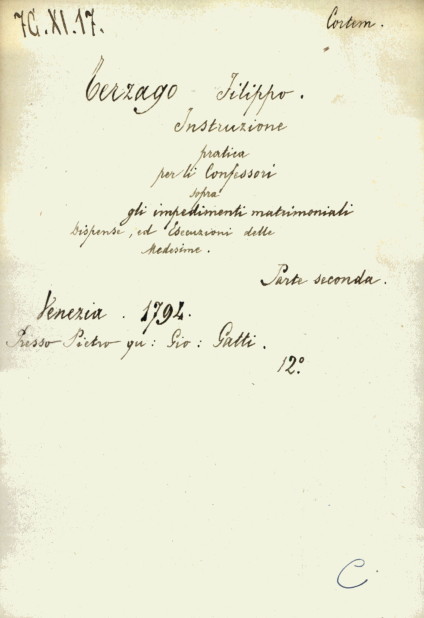 7G.XI.17.
Cortem.
Terzago Filippo.
Instruzione
pratica
per li Confessori
sopra
gli impedimenti matrimoniali
Dispense, ed Esecuzioni delle
Medesime.
Parte seconda.
Venezia. 1794.
Presso Pietro qu: Gio: Gatti.
12°.
C.